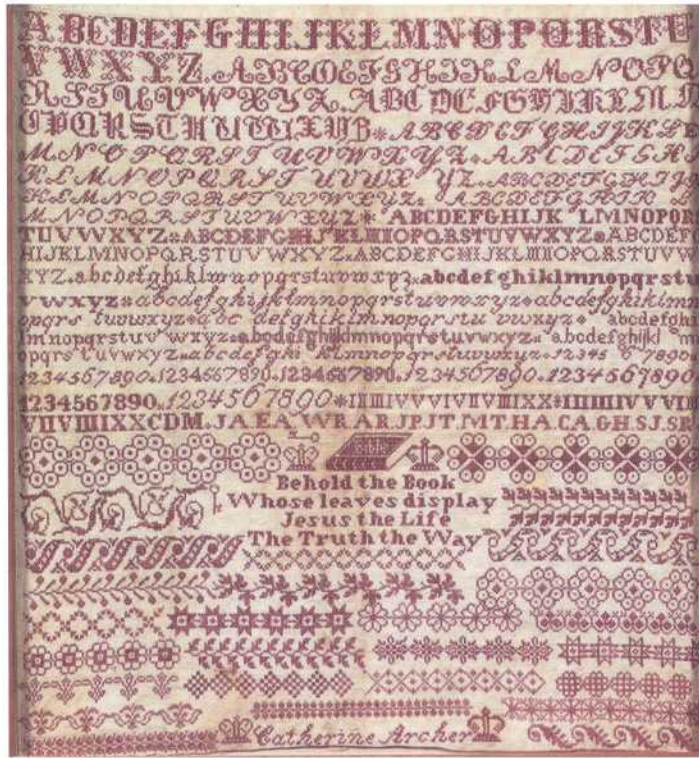 ABCDEFGHIJKLMNOPQRSTU
VWXYZ.ABCDEFGHIJKLMNOPQ
RSTUVWXYZ.ABCDEFGHIKLMN
OPQRSTUVWXYZ*ABCDEFGHIJKL
MNOPQRSTUVWXYZ*ABCDEFGH
KLMNOPQRSTUVWXYZ.ABCDEFGHIJ
KLMNOPQRSTUVWXYZ.ABCDEFGHIK
MNOPQRSTUVWXYZ* ABCDEFGHIJK LMNOPQR
TUVWXYZ*ABCDEFGHIJKLMNOPQRSTUVWXYZ*ABCDEF
HIJKLMNOPQRSTUVWXYZ.ABCDEFGHIJKLMNOPQRSTUVW
XYZ.abcdefghiklmnopqrstuvwxyz*abcdefghiklmnopqrstu
vwxyz*abcdefghijklmnopqrstuvwxyz*abcdefghijklmn
opqrs tuvwxyz*abc defghijklmnopqrstu vwxyz* abcdefgh
lmnopqrstuv wxyz*abcdefghijklmnopqrstuvwxyz* abcdefghijkl m
opqrs tuvwxyz*abcdefghi klmnopqrstuvwxyz.12345 67890
1234567890.1234567890.1234567890.1234567890.1234567890
1234567890.1234567890*IIIIIIIVVVIVIIVIIIIXX*IIIIIIIVVVII
VIIVIIIIXXCDM.JA.EA.WR.AR.JP.JT.MT.HA.CA.GH.SJ.SR
Bible
Behold the Book
Whose leaves display
Jesus the Life
The Truth the Way
Catherine Archer